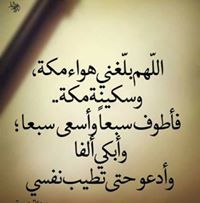 اللّهم بلّغني هواء مكة،
وسكينة مكة..
فأطوف سبعاً وأسعى سبعا؛
وأبكي ألفا
وأدعو حتى تطيب نفسي